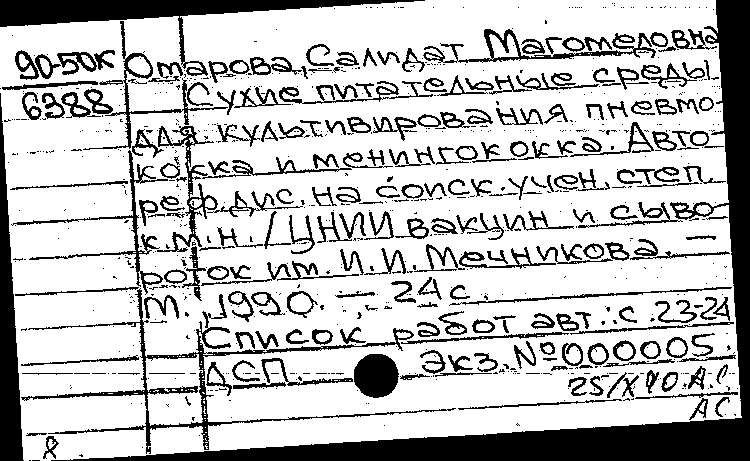 90-50К Омарова, Салидат Магомедовна
6388 Сухие питательные среды
для культивирования пневмо-
кокка и менингококка: Авто-
реф. дис. на соиск. учен. степ.
к.м.н. / ЦНИИ вакцин и сыво-
роток им. И. И. Мечникова. —
М., 1990. — 24 с.
Список работ авт.: с. 23-24
ДСП. Экз. №000005.
25/X 90. А.С.
АС
8